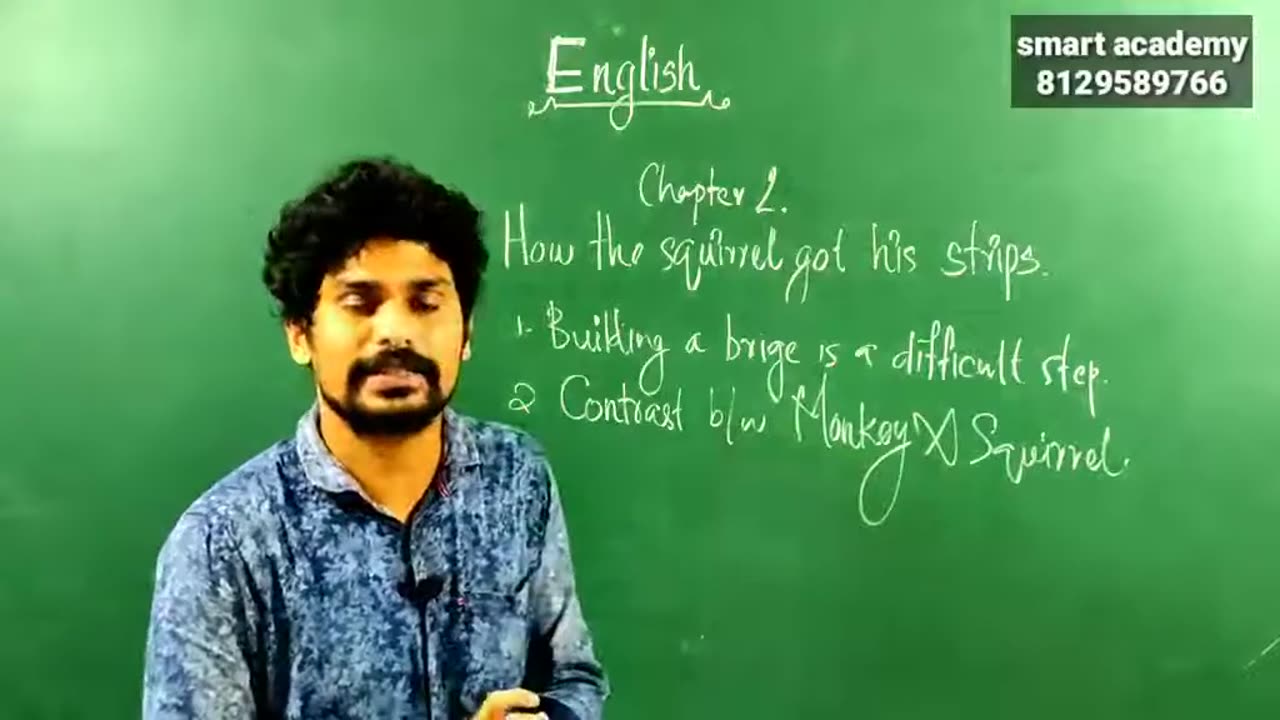 smart academy
8129589766
English
Chapter 2.
How the squirrel got his strips.
1. Building a brige is a difficult step.
2 Contrast b/w Monkey X Squirrel.